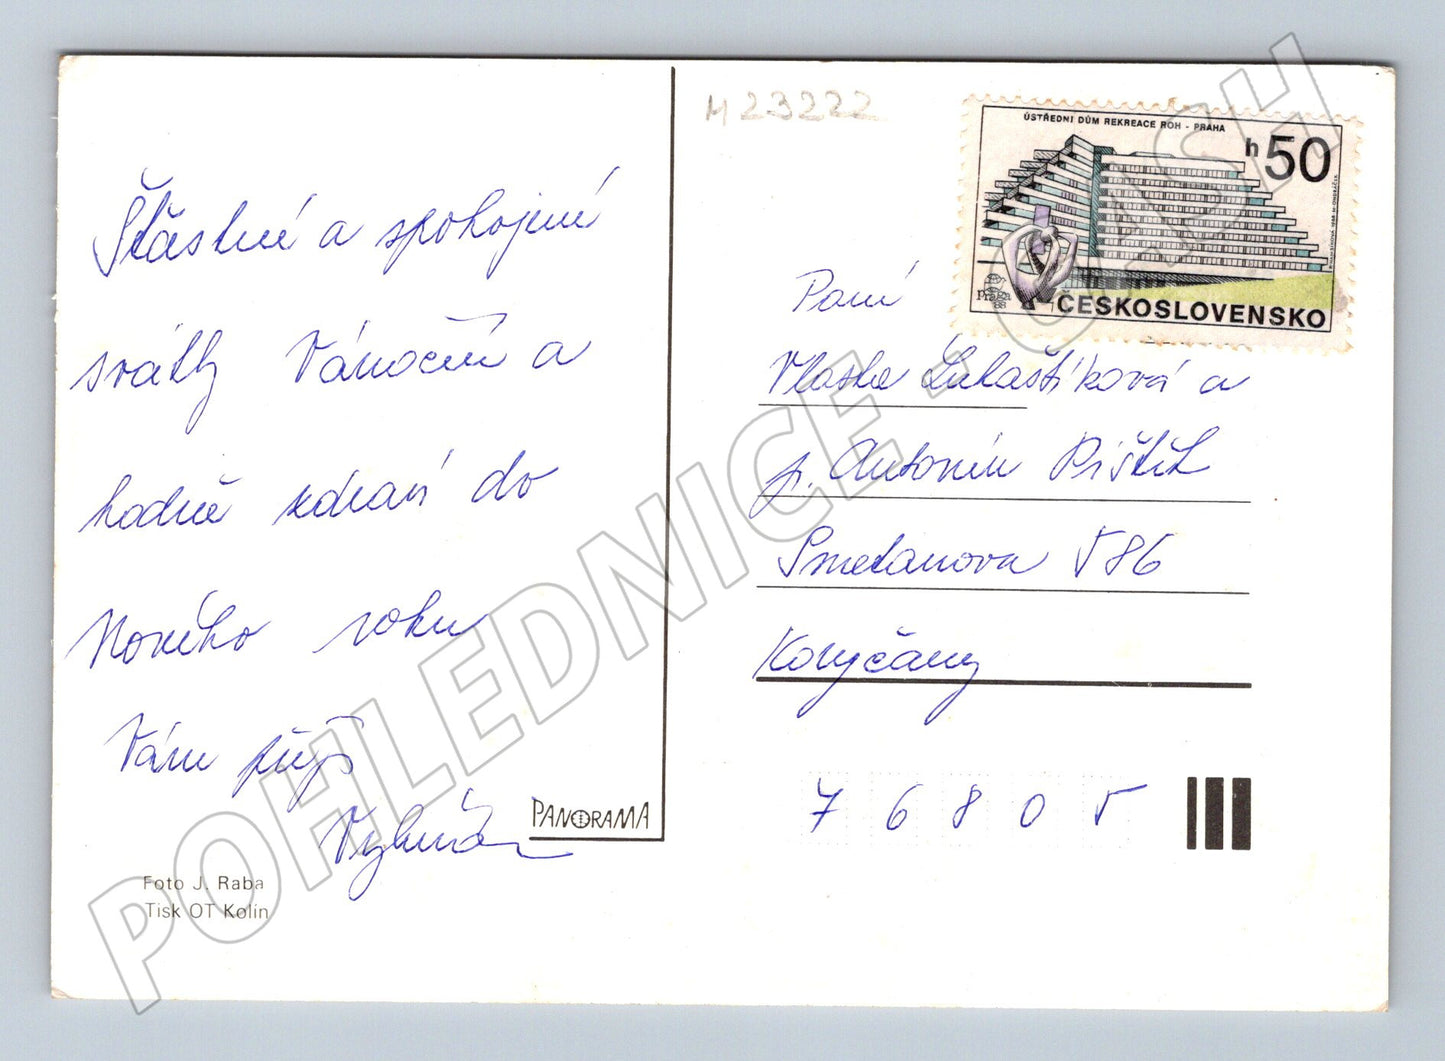 M 23222
ÚSTŘEDNÍ DŮM REKREACE ROH - PRAHA
h50
praga
88
ČESKOSLOVENSKO
Šťastné a spokojené
svátky Vánoční a
hodně zdraví do
Nového roku
Vám přejí
Paní
Vlasta Lukaštíková a
p. Antonín Pištěk
Smetanova 586
Koryčany
76805
PANORAMA
Foto J. Raba
Tisk OT Kolín
POHLEDNICE - CASH